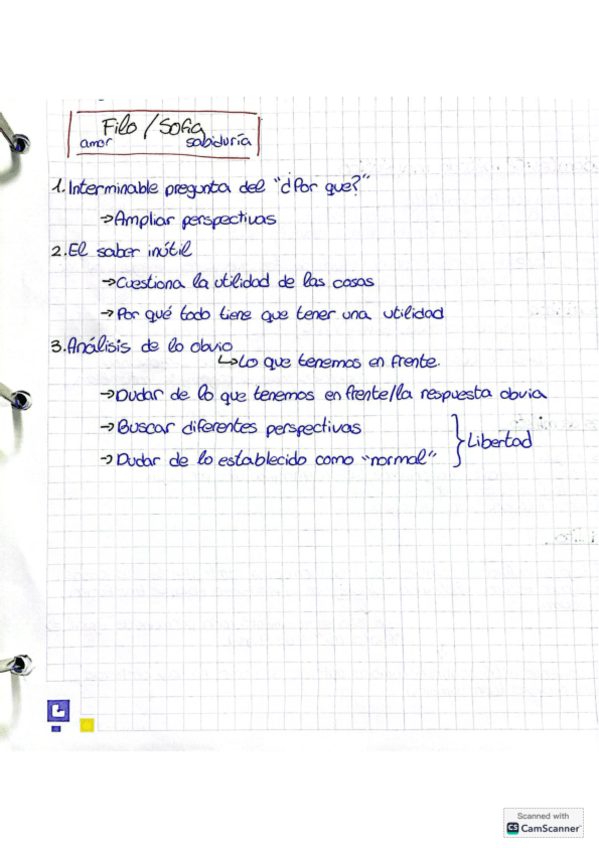 Filo / Sofia
amor sabiduría
1. Interminable pregunta del "¿Por que?"
→ Ampliar perspectivas
2. El saber inútil
→ Cuestiona la utilidad de las cosas
→ Por qué todo tiene que tener una utilidad
3. Análisis de lo obvio
↳ Lo que tenemos en frente.
→ Dudar de lo que tenemos en frente/la respuesta obvia
→ Buscar diferentes perspectivas
→ Dudar de lo establecido como "normal"
} Libertad
Scanned with
CS CamScanner